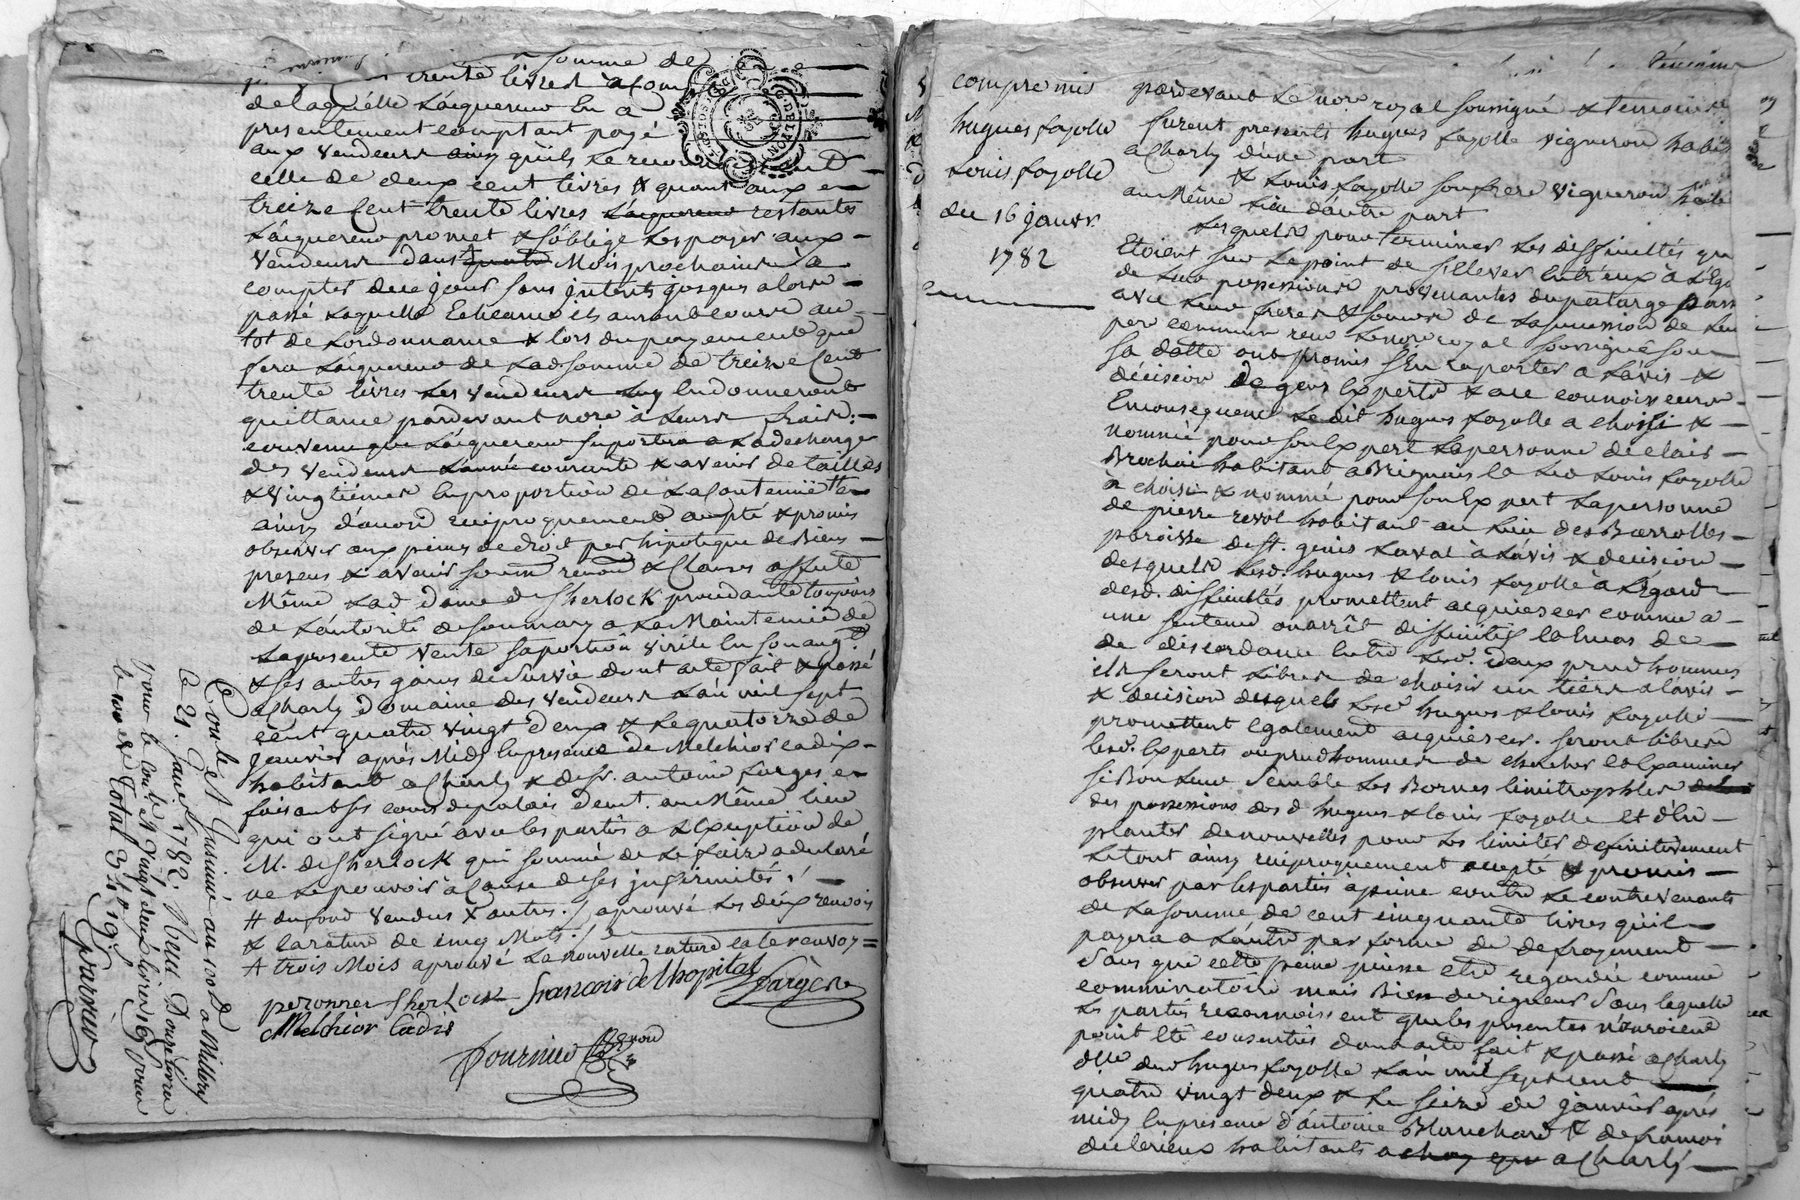 somme de
trente livres a compte
de laquelle L'acquereur en a
presentement comptant payé
aux vendeurs ainsy qu'ils Le
celle de deux cent livres & quant aux
treize Cent trente livres L'acquereur restantes
L'acquereur promet & s'oblige Les payer aux
vendeurs dans quatre Mois prochains a
compter de ce jour sans interets jusques alors
passé Laquelle Echeance ils auront cours au
tot de L'ordonnance & lors du payement que
fera L'acquereur de Lad. somme de treize Cent
trente livres Les vendeurs Luy En donneront
quittance pardevant nore à Leurs frais.
convenu que L'acquereur suportera a La decharge
des vendeurs L'année courante & avenir de tailles
& Vingtiemes En proportion de La Contenue
ainsy d'accord reciproquement accepté & promis
observer aux peines de droit par hipoteque de Biens
presens & avenir soum renon & Clauses affecté
Même Lad. Dame de Sherlock procedante toujours
de L'autorité de son mary a La Maintenue de
La presente Vente sa portion virile En son augt.
& ses autres gains de Survie dont acte fait & passé
a Charly Domaine des vendeurs L'an mil sept
cent quatre vingt deux & Le quatorze de
Janvier après Midy En presence de Melchior cadix
habitant a Charly & de Sr. antoine farges
faisant Ses cours de palais demt. au Même lieu
qui ont signé avec les parties a L'Exception de
M. de Sherlock qui sommé de Le faire a declaré
ne Le pouvoir à Cause de ses infirmités ./.
# du fond vendus & autres. / aprouvé Les deux renvois
& la rature de cinq Mots. /
A trois Mois aprouvé La nouvelle rature et le renvoy =
peronner Sherlock françois de Lhopital fargere
Melchior Cadix
fournier
Controllé et Insinué au bd. a Millery
Le 21. Janvier 1782. Reçu Douze livres
pour le Contle. et Vingt deux livres 16s pour
le 100e. Total 34tt 16s.
Guarnier
compromis
hugues fayolle
Louis fayolle
du 16 janvr.
1782
pardevant Le nore royal soussigné & temoins
furent presents hugues fayolle vigneron
a Charly d'une part
& Louis fayolle son frere vigneron
au Même Lieu d'autre part
Lesquels pour terminer Les difficultés
Etoient sur Le point de s'ellever Entr'eux à
de Leurs possessions provenantes du partage
avec Leurs freres & soeurs de La succession de
pere commun recu Le nore royal soussigné sous
sa datte ont promis s'En raporter a L'avis &
décision de gens Experts & a ce connoisseurs
En consequence Le dit hugues fayolle a choisi &
nommé pour son Expert La personne de clair
Brochai habitant a Brignais Et Led. Louis fayolle
a choisi & nommé pour son Expert La personne
de pierre revol habitant au Lieu des Barrolles
paroisse de St. genis Laval à L'avis & decision
desquels Lesd. hugues & Louis fayolle à L'égard
desd. difficultés promettent acquiescer comme a
une sentence ou arrêt diffinitif Et En cas de
de discordance Entre Lesd. deux prudhommes
ils seront Libres de choisir un tiers a L'avis
& decision desquels Lesd. hugues & Louis fayolle
promettent Egalement acquiescer. seront libres
Lesd. Experts ou prudhommes de chercher Et Examiner
si Bon Leur Semble Les Bornes limitrophes
des possessions desd. hugues & Louis fayolle Et d'En
planter de nouvelles pour Les limiter definitivement
Le tout ainsy reciproquement accepté & promis
observer par les parties à peine contre Le contrevenants
de La somme de cent cinquante livres qu'il
payera a L'autre par forme de defrayement
sans que cette peine puisse etre regardée comme
comminatoire mais Bien de rigueur sans laquelle
Les parties reconnoissent que les presentes n'auroient
point Eté consenties dont acte fait & passé a Charly
dlle. dud hugues fayolle L'an mil sept cent
quatre vingt deux & Le seize de janvier après
midy En presence d'antoine Blanchard & de francois
duclerieux habitants a Charly